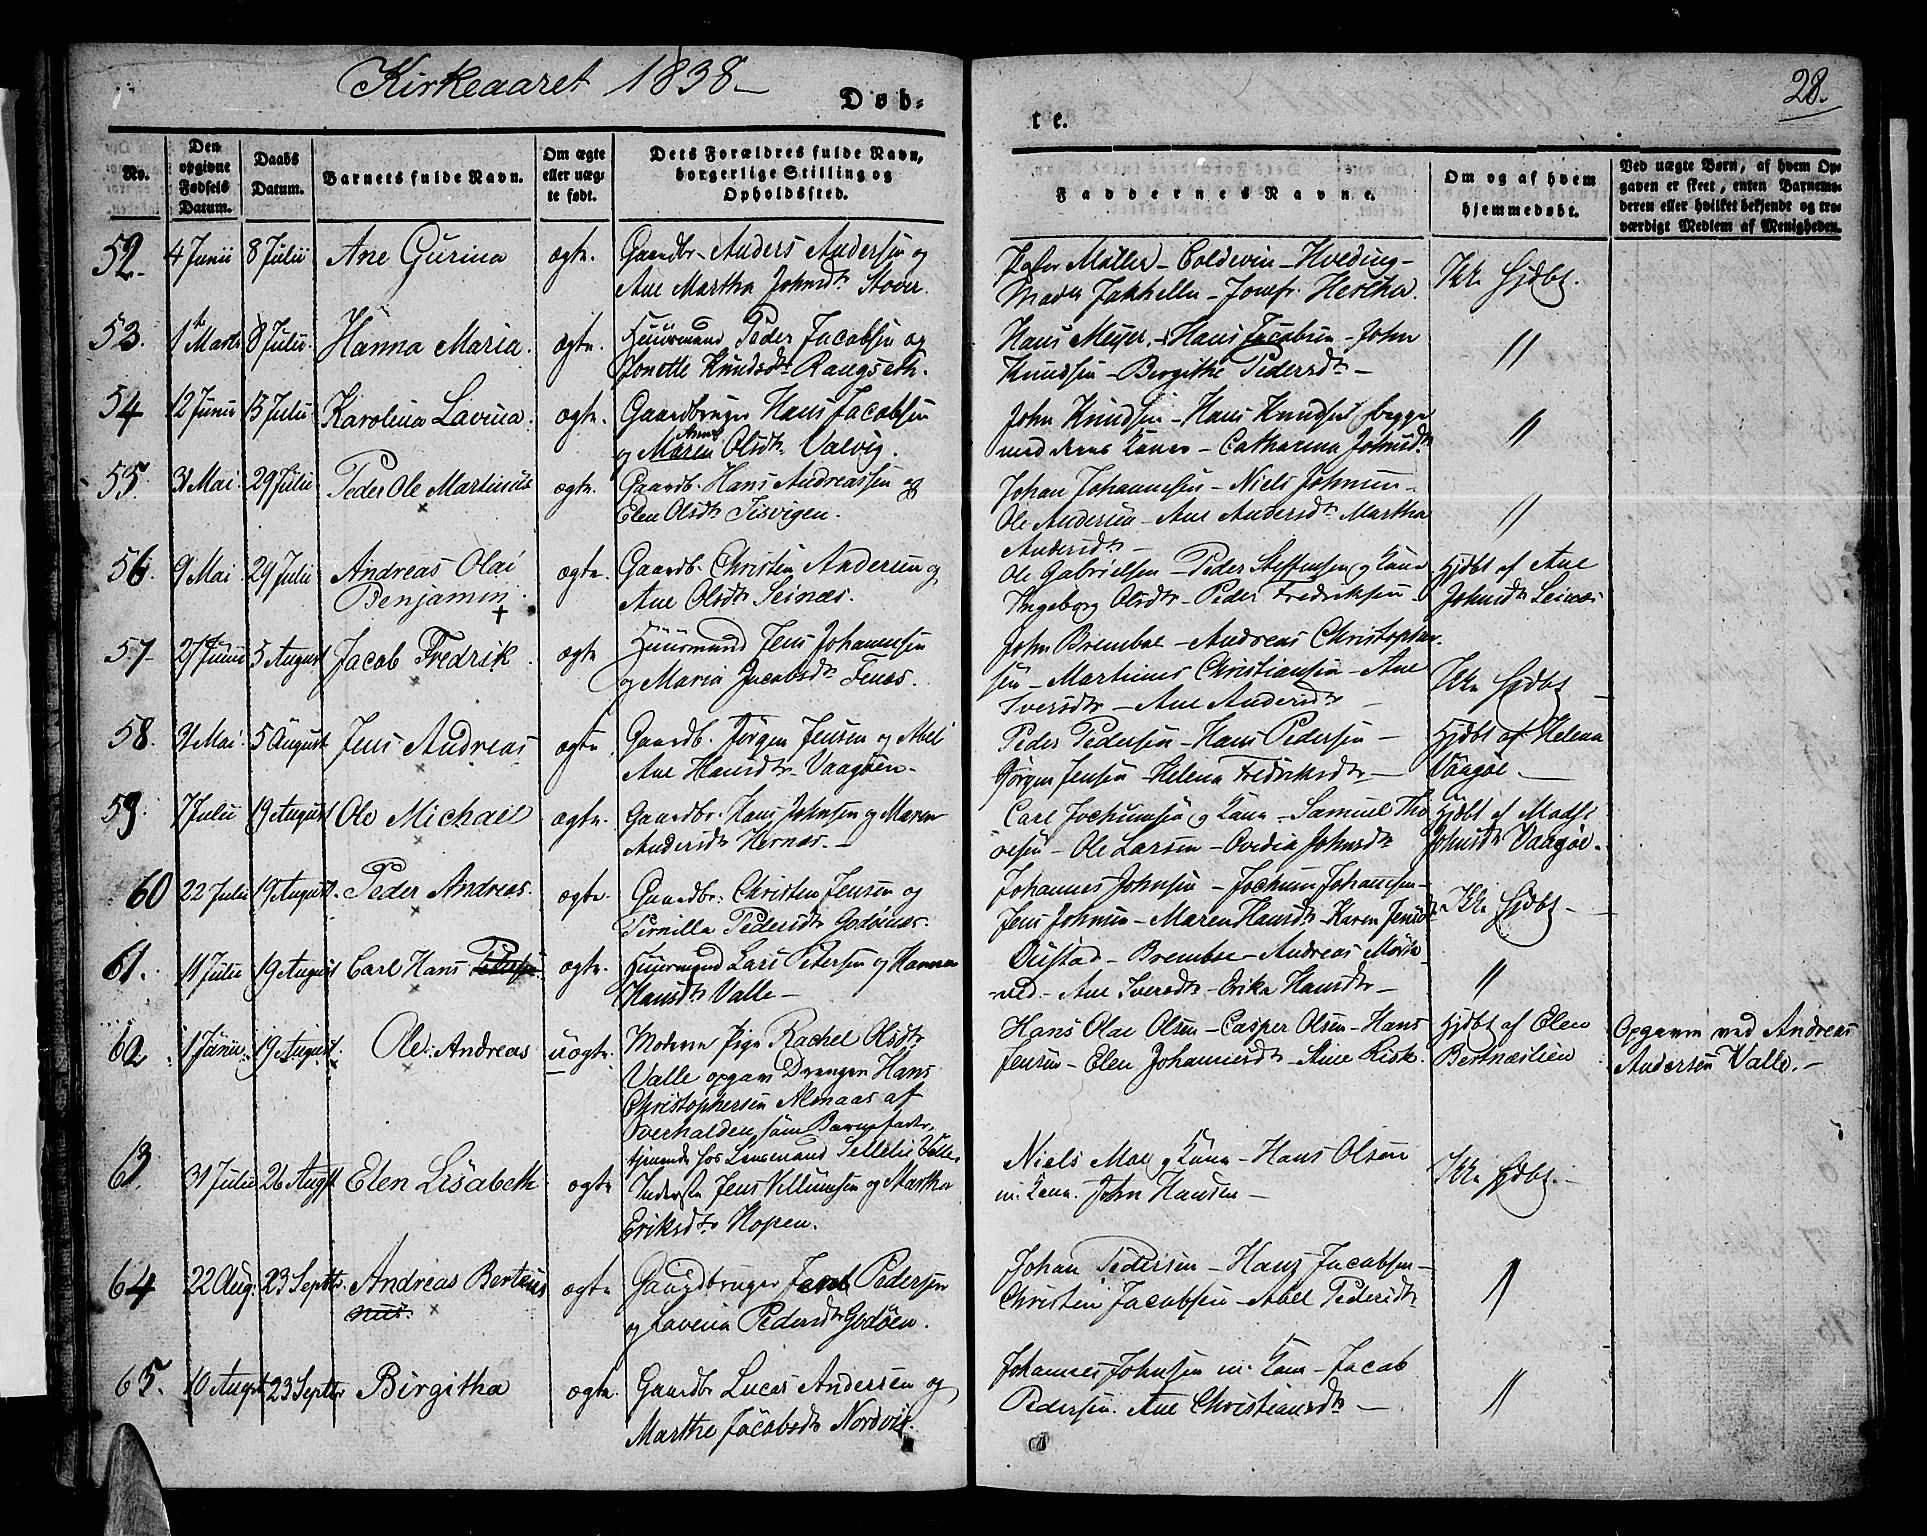 Kirkeaaret 1838 –
Døb-
te.
28.
No.
Den opgivne Fødsels Datum.
Daabs Datum.
Barnets fulde Navn.
Om ægte eller uægte født.
Dets Forældres fulde Navn, borgerlige Stilling og Opholdssted.
Faddernes Navne.
Om og af hvem hjemmedøbt.
Ved uægte Børn, af hvem Opgaven er skeet, enten Barnemoderen eller hvilket bekjendt og troværdigt Medlem af Menigheden.
52. 4 Junii 8 Julii Ane Gurina ægte. Gaardbr. Anders Andersen og
Ane Martha Johnsdtr Stover.
Møller – Coldevin – Hveding –
Mads Jakhelln – Jomfr. Hertha. Ikke Hjdbt.
53. 1te Marts 8 Julii. Hanna Maria. ægte. Huusmand Peder Jacobsen og
Jonette Knudsdtr Rangseth.
Hans Meyer – Hans Jacobsen – John
Knudsen – Birgithe Pedersdtr – "
54 12 Junii 13 Julii Karolina Lavina. ægte. Gaardbruger Hans Jacobsen
og Maren Anna Olsdtr Valvig.
John Knudsen – Hans Knudsen begge
med deres Koner – Catharina Johnsdtr "
55. 31 Mai. 29 Julii Peder Ole Martinus ægte. Gaardb. Hans Andreassen og
Elen Olsdtr Tisvigen.
Johan Johannesen – Niels Johnsen –
Ole Andersen – Ane Andersdtr Martha
Andersdtr – "
56. 9 Mai 29 Julii Andreas Olai
Benjamin. ægte. Gaardb. Christen Andersen og
Ane Olsdtr Seinæs.
Ole Gabrielsen – Peder Steffensen og Kone
Ingeborg Olsdtr – Peder Fredriksen – Hjdbt af Ane
Johnsdtr Seinæs
57 – 27 Junii 5 August Jacob Fredrik. ægte Huusmand Jens Johannesen
og Maria Jacobsdtr Fenes.
John Bremboe – Andreas Christopher-
sen – Martinus Christiansen – Ane
Iversdtr – Ane Andersdtr – Ikke Hjdbt –
58. 31 Mai 5 August Jens Andreas ægte Gaardb. Jørgen Jensen og Abel
Ane Hansdtr Vaagøen –
Peder Pedersen – Hans Pedersen –
Jørgen Jensen – Helena Fredriksdtr – Hjdbt af Helena
Vaagøe. –
59. 7 Julii 19 August Ole Michael ægte. Gaardbr. Hans Johnsen og Maren
Andersdtr Hernæs. –
Carl Jochumsen og Kone – Samuel Tho-
resen – Ole Larsen – Ovedia Johnsdtr Hjdbt af
Johnsdtr Vaagøe.
60 22 Julii 19 August. Peder Andreas. ægte. Gaardbr. Christen Jensen og
Pernilla Pedersdtr Godønæs.
Johannes Johnsen – Jochum Johansen –
Jens Johnsen – Maren Hansdtr – Karen Jensdtr Ikke Hjdbt –
61. 11 Julii 19 August Carl Hans ægte. Huusmand Lars Petersen og Hanna
Hansdtr Valle –
Oustad – Bremboe – Andreas Mørk-
ved – Ane Iversdtr – Erika Hansdtr – "
62. 1 Junii. 19 August. Ole Andreas uægte. Moderen Pige Rachel Olsdtr
Valle opgav Drengen Hans
Christophersen Almaas af
Overhalden, som Barnefader,
tjenende hos Lensmand Jellelie Valle.
Hans Olai Olsen – Casper Olsen – Hans
Jensen – Elen Johannesdtr – Ane Risk. Hjdbt af Elen
Bertnæslien
Opgaven ved Andreas
Andersen Valle. –
63. 31 Julii 26 Augst Elen Lisabeth ægte Inderste Jens Villumsen og Martha
Eriksdtr Kopen.
Niels Moe og Kone – Hans Olsen
m. Kone. John Hansen – Ikke Hjdbt. –
64 22 Aug. 23 Septbr. Andreas Berteus
nus. ægte Gaardbruger Pedersen
og Lavina Pedersdtr Godøen.
Johan Pedersen – Hans Jacobsen –
Christen Jacobsen – Abel Pedersdtr "
65. 10 August 23 Septbr Birgitha ægte. Gaardbr Lucas Andersen og
Marthe Jacobsdtr Nordvik.
Johannes Johnsen m. Kone – Jacob
Pedersen. Ane Christiansdtr – "